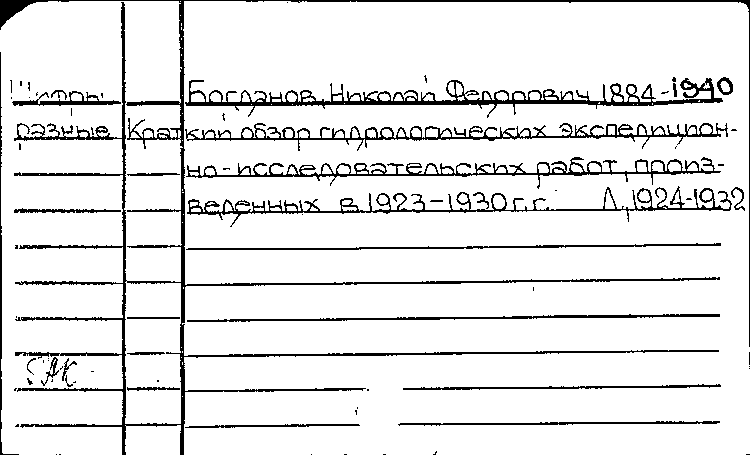 Шифры Богданов, Николай Федорович, 1884-1940
разные Краткий обзор гидрологических экспедицион-
но-исследовательских работ, произ-
веденных в 1923-1930 г.г. Л., 1924-1932
БАК